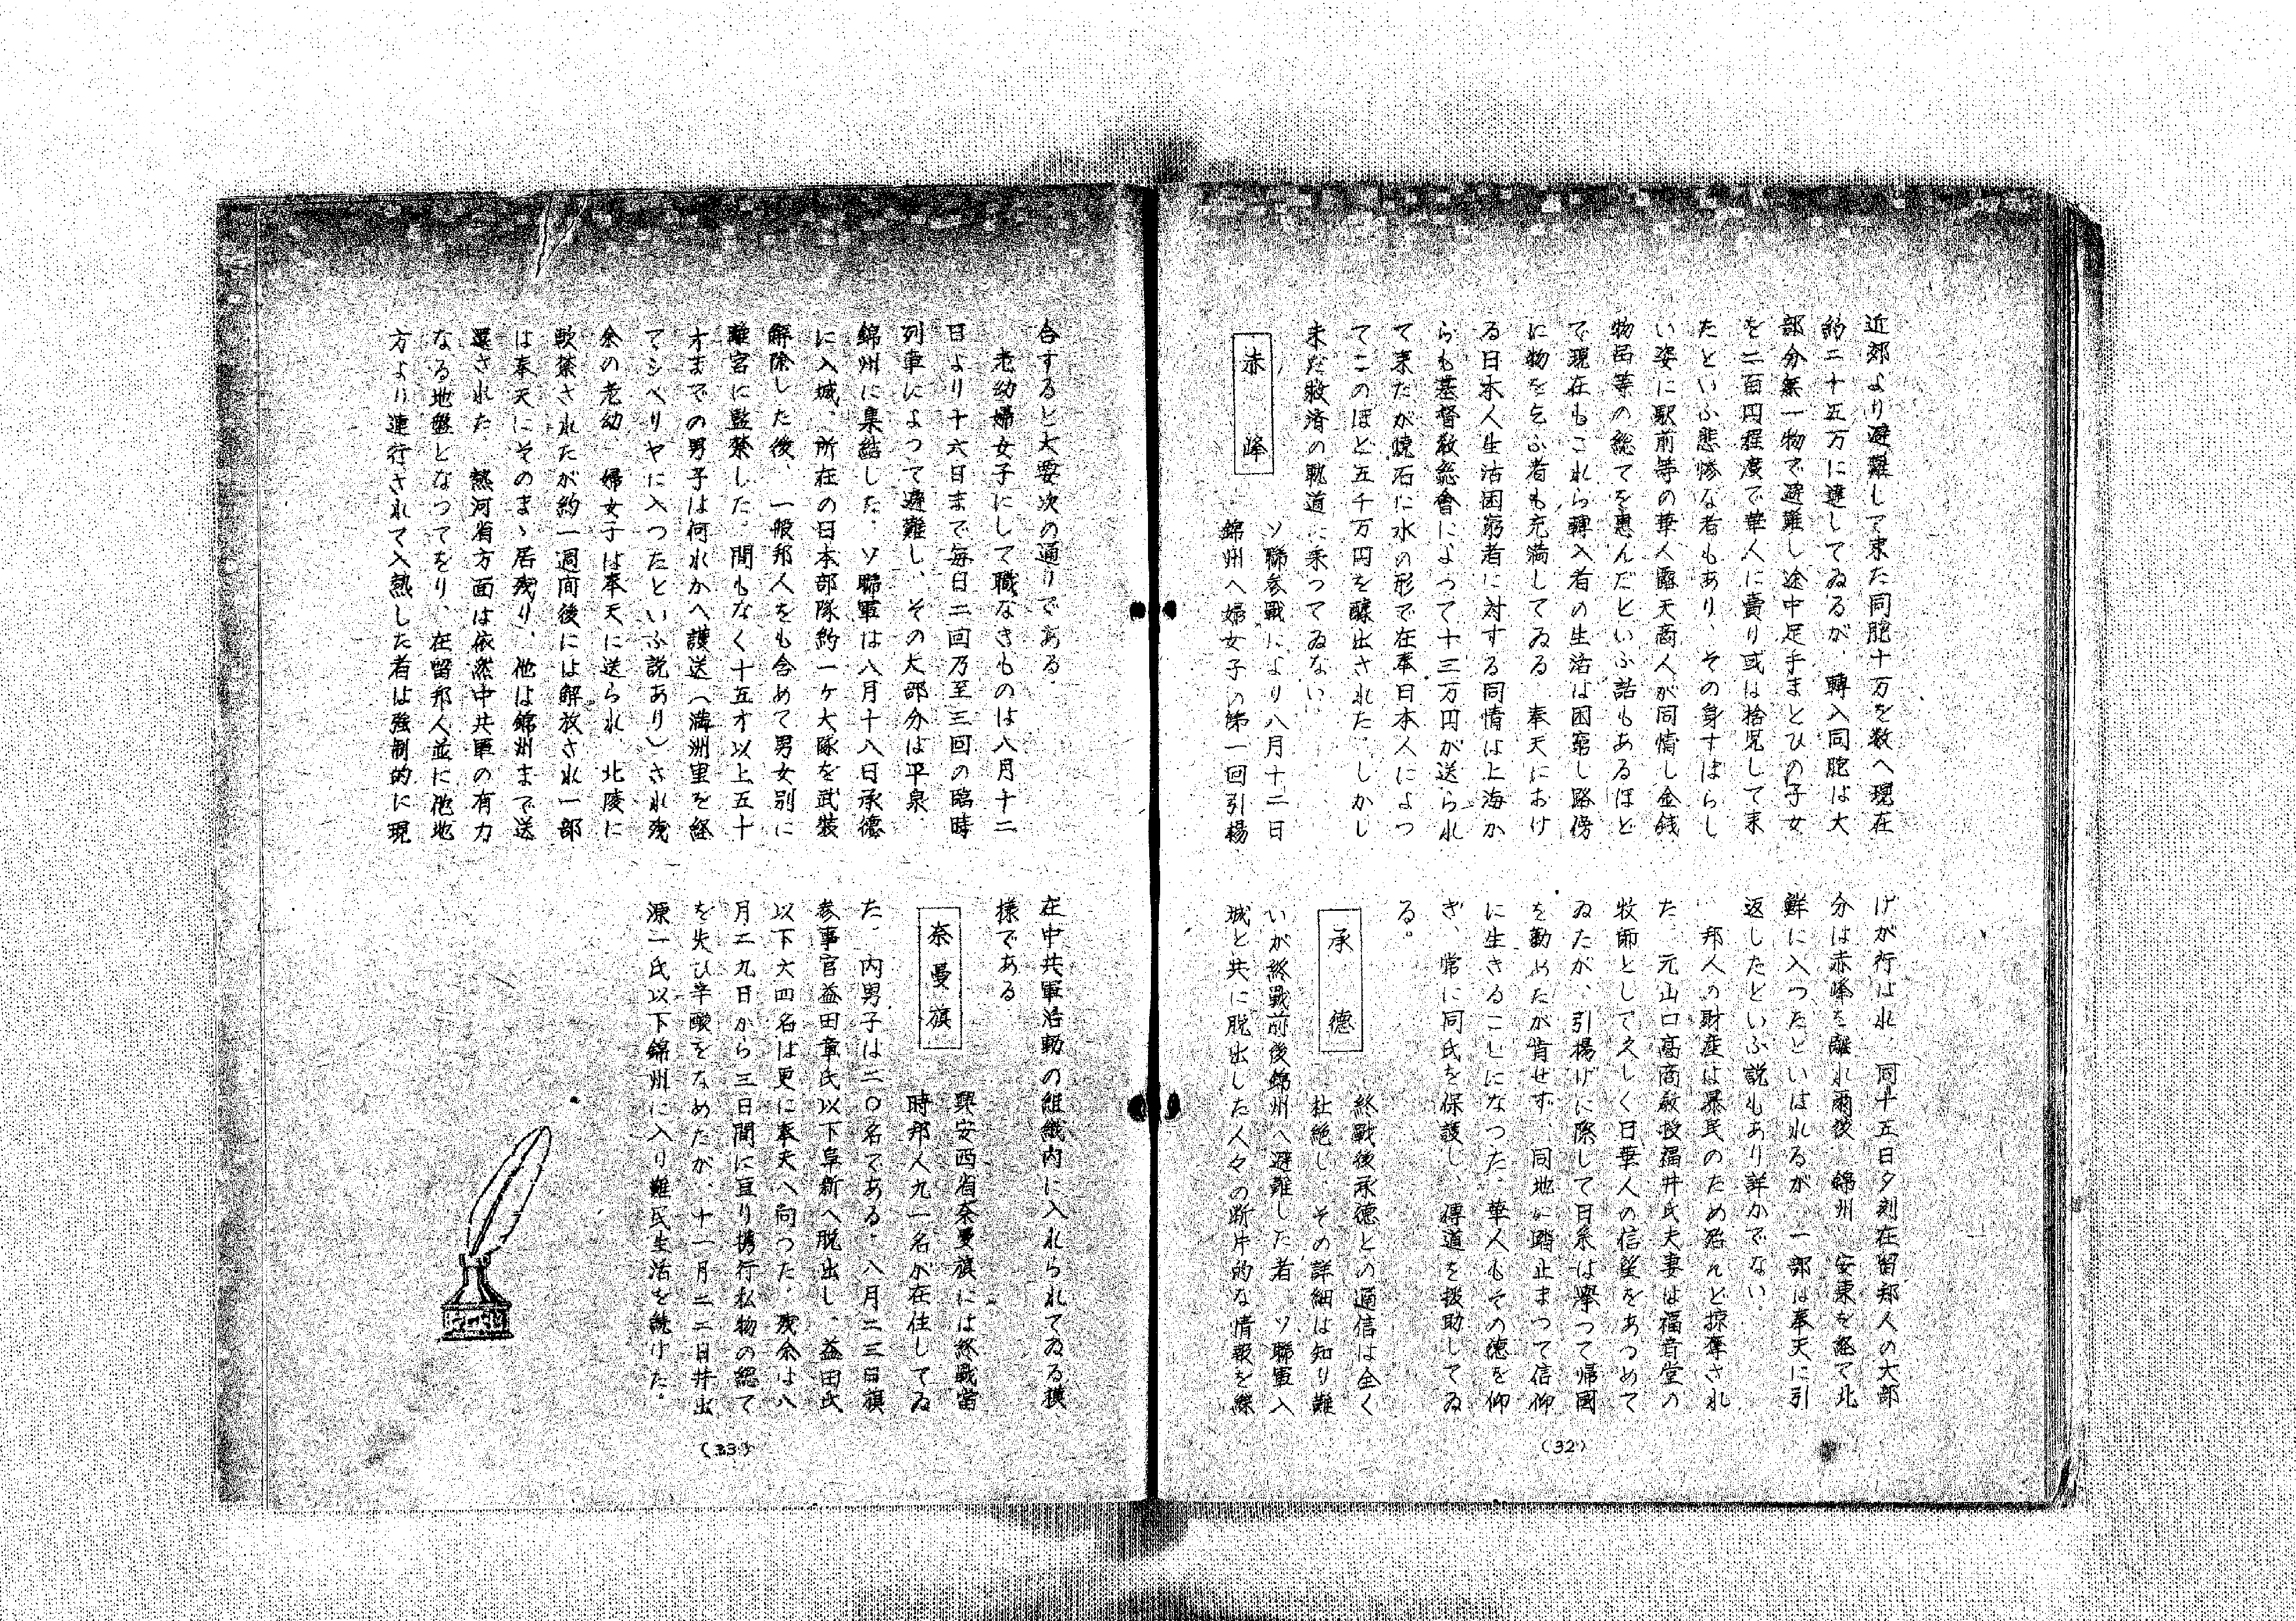 近郊より避難して来た同胞十万を数へ現在
約二十五万に達してゐるが 轉入同胞は大
部分無一物で避難し途中足手まとひの子女
を二百円程度で華人に賣り或は捨児して来
たといふ悲惨な者もあり、その身すぼらし
い姿に駅前等の華人露天商人が同情し金銭
物品等の総てを恵んだといふ話もあるほど
で現在もこれら轉入者の生活は困窮し路傍
に物を乞ふ者も充満してゐる 奉天におけ
る日本人生活困窮者に対する同情は上海か
らも基督教総會によつて十三万円が送られ
て来たが焼石に水の形で在奉日本人によつ
てこのほど五千万円を醵出された。しかし
未だ救済の軌道に乗つてゐない
赤峰
ソ聯参戰により八月十二日
錦州へ婦女子の第一回引揚
げが行はれ 同十五日夕刻在留邦人の大部
分は赤峰を離れ爾後 錦州 安東を経て北
鮮に入つたといはれるが、一部は奉天に引
返したといふ説もあり詳かでない。
邦人の財産は暴民のため殆んど掠奪され
た。元山口高商教授福井氏夫妻は福音堂の
牧師として久しく日華人の信望をあつめて
ゐたが、引揚げに際して日系は挙つて帰國
を勧めたが肯せず 同地に踏止まつて信仰
に生きることになつた。華人もその徳を仰
ぎ、常に同氏を保護し、傳道を援助してゐ
る。
承德
終戰後承德との通信は全く
杜絶し、その詳細は知り難
いが終戰前後錦州へ避難した者、ソ聯軍入
城と共に脱出した人々の断片的な情報を綜
(32)
合すると大要次の通りである。
老幼婦女子にして職なきものは八月十二
日より十六日まで毎日二回乃至三回の臨時
列車によつて避難し、その大部分は平泉
錦州に集結した。ソ聯軍は八月十八日承德
に入城、所在の日本部隊約一ケ大隊を武装
解除した後、一般邦人をも含めて男女別に
離宮に監禁した。間もなく十五才以上五十
才までの男子は何れかへ護送(満洲里を経
てシベリヤに入つたといふ説あり)され残
余の老幼 婦女子は奉天に送られ 北陵に
軟禁されたが約一週间後には解放され一部
は奉天にそのまゝ居残り、他は錦州まで送
還された 熱河省方面は依然中共軍の有力
なる地盤となつてをり、在留邦人並に他地
方より連行されて入熱した者は強制的に現
在中共軍活動の組織内に入れられてゐる模
様である
奈曼旗
興安西省奈曼旗には終戰當
時邦人九一名が在住してゐ
た。内男子は二〇名である。八月二三日旗
参事官益田章氏以下阜新へ脱出し、益田氏
以下六四名は更に奉天へ向つた。残余は八
月二九日から三日間に亘り携行私物の総て
を失ひ辛酸をなめたが、十一月二二日井出
源一氏以下錦州に入り難民生活を続けた。
(33)